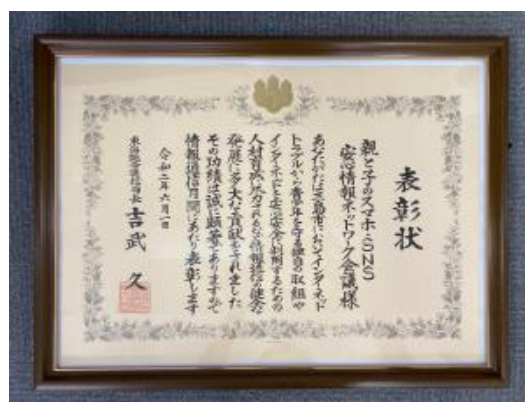 表彰状
親と子のスマホ・SNS
安心情報ネットワーク会議様
あなたがたは
市においてインターネット
トラブルから青少年を守る独自の取組や
インターネットを安心安全に利用するための
人材育成に尽力されるなど情報通信の健全な
発展に多大な貢献をされました
その功績は誠に顕著でありますので
情報通信月間にあたり表彰します
令和二年六月一日
東海総合通信局長 吉武 久